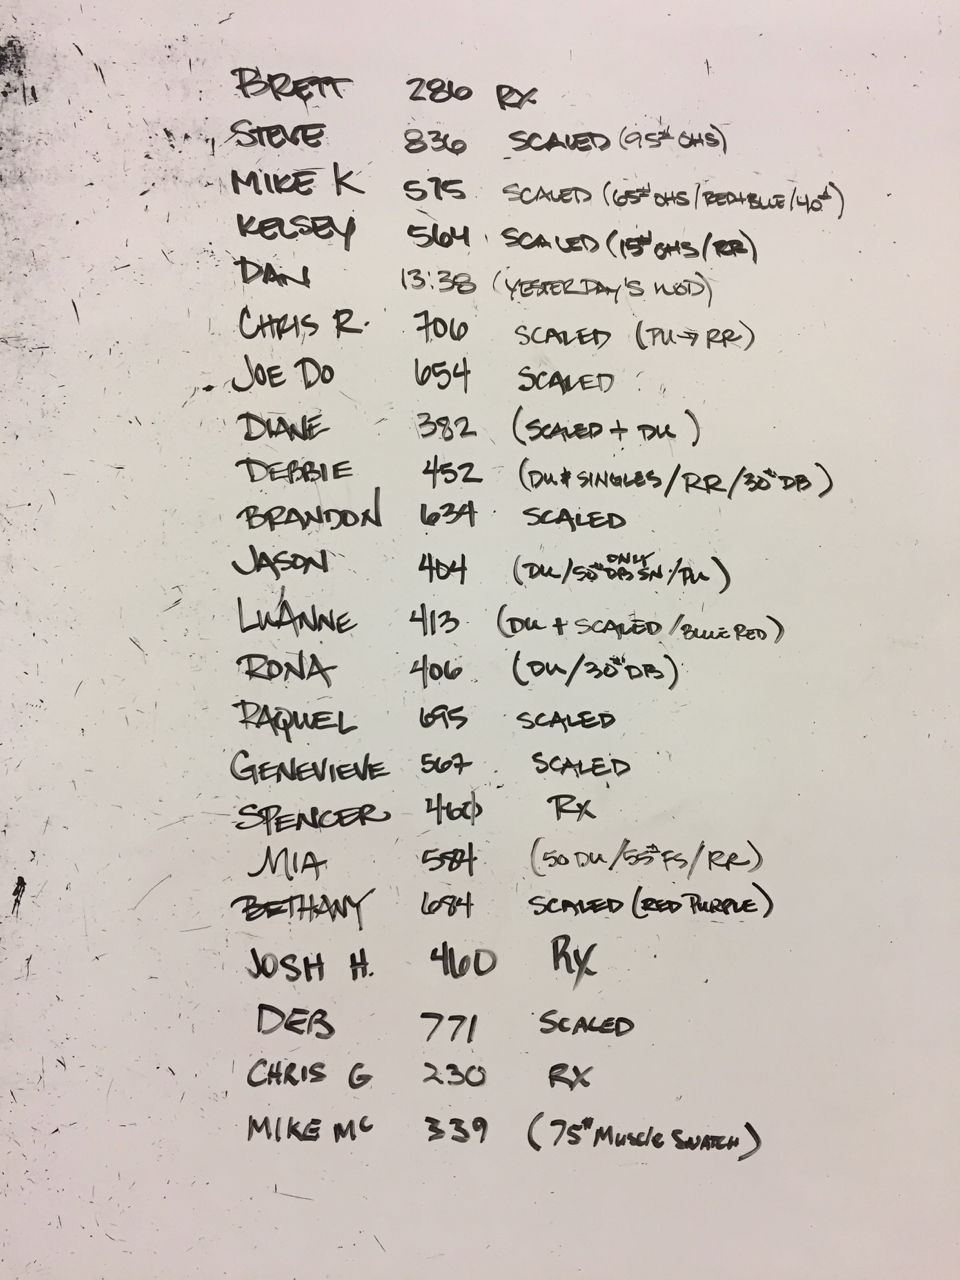 BRETT 286 RX
STEVE 836 SCALED (95# OHS)
MIKE K 575 SCALED (65# OHS/RED+BLUE/40#)
KELSEY 564 SCALED (15# OHS/RR)
DAN 13:38 (YESTERDAY'S WOD)
CHRIS R. 706 SCALED (PU→RR)
JOE DO 654 SCALED
DIANE 382 (SCALED + DU)
DEBBIE 452 (DU & SINGLES/RR/30# DB)
BRANDON 634 SCALED
JASON 404 (DU/50# DB ONLY SN/PU)
LUANNE 413 (DU + SCALED/BLUE RED)
RONA 406 (DU/30# DB)
RAQUEL 695 SCALED
GENEVIEVE 567 SCALED
SPENCER 460 RX
MIA 584 (50 DU/55# FS/RR)
BETHANY 684 SCALED (RED PURPLE)
JOSH H. 460 RX
DEB 771 SCALED
CHRIS G 230 RX
MIKE MC 339 (75# MUSCLE SNATCH)